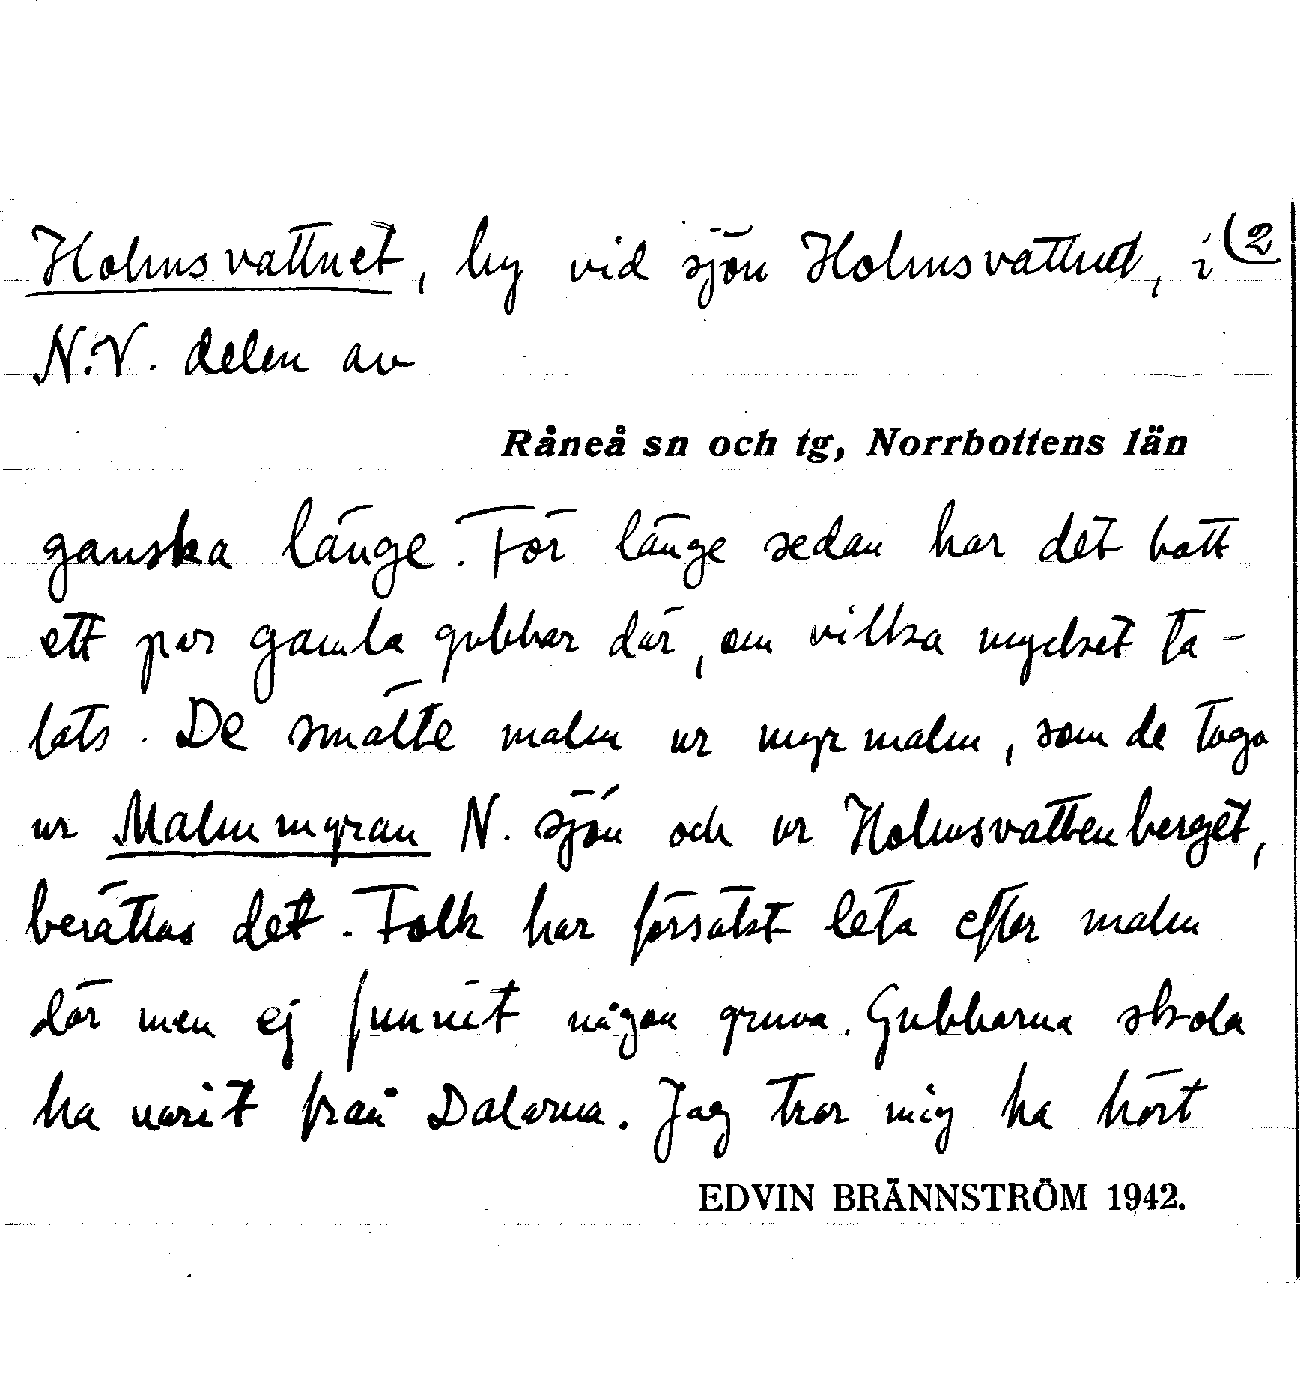 Holmsvattnet, by vid sjön Holmsvattnet, i (2
N.V. delen av
Råneå sn och tg, Norrbottens län
ganska länge. För länge sedan har det bott
ett par gamla gubbar där, om vilka mycket ta-
lats. De smälte malm ur myrmalm, som de togo
ur Malmmyran N. sjön och ur Holmsvattenberget,
berättas det. Folk har försökt leta efter malm
där men ej funnit någon gruva. Gubbarna skola
ha varit från Dalarna. Jag tror mig ha hört
EDVIN BRÄNNSTRÖM 1942.